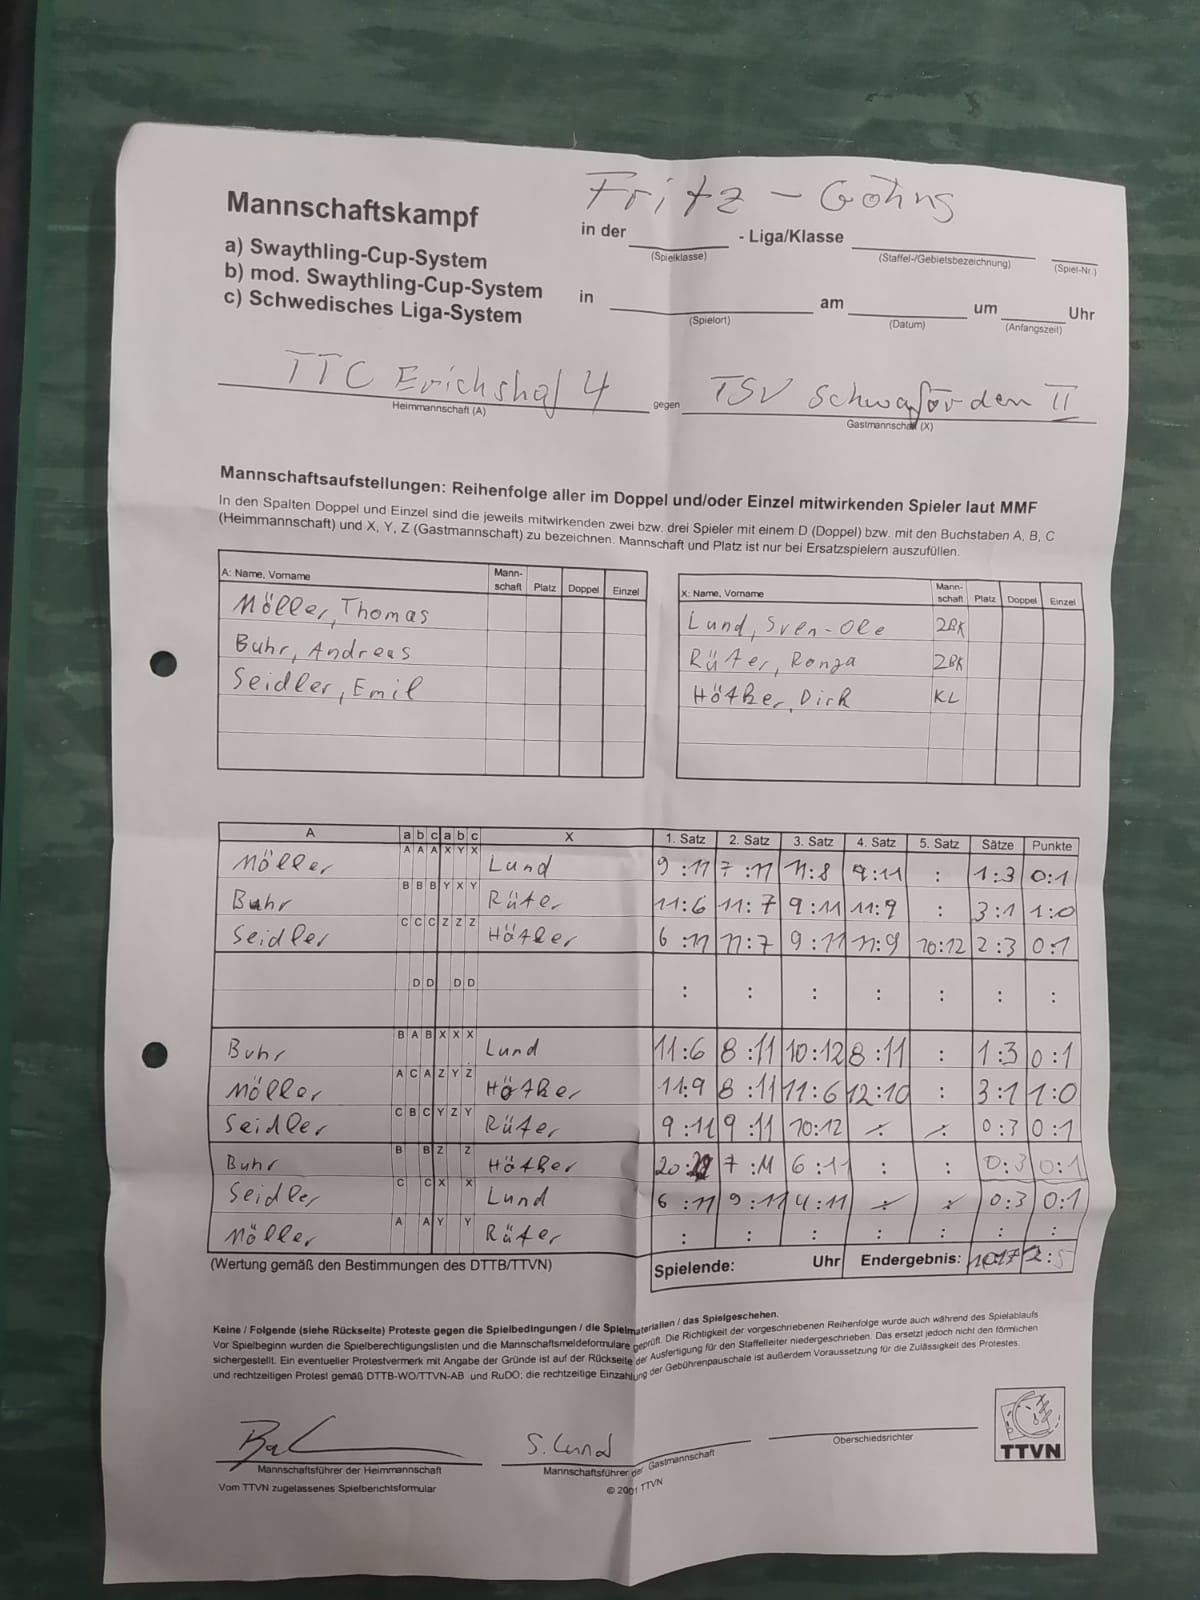 Fritz - Göhns
Mannschaftskampf
in der - Liga/Klasse
(Spielklasse) (Staffel-/Gebietsbezeichnung) (Spiel-Nr.)
a) Swaythling-Cup-System
b) mod. Swaythling-Cup-System
c) Schwedisches Liga-System
in am um Uhr
(Spielort) (Datum) (Anfangszeit)
TTC Erichshof 4 gegen TSV Schwaförden II
Heimmannschaft (A) Gastmannschaft (X)
Mannschaftsaufstellungen: Reihenfolge aller im Doppel und/oder Einzel mitwirkenden Spieler laut MMF
In den Spalten Doppel und Einzel sind die jeweils mitwirkenden zwei bzw. drei Spieler mit einem D (Doppel) bzw. mit den Buchstaben A, B, C
(Heimmannschaft) und X, Y, Z (Gastmannschaft) zu bezeichnen. Mannschaft und Platz ist nur bei Ersatzspielern auszufüllen.
A: Name, Vorname Mann-schaft Platz Doppel Einzel
Möller, Thomas
Buhr, Andreas
Seidler, Emil
X: Name, Vorname Mann-schaft Platz Doppel Einzel
Lund, Sven-Ole 2BK
Rüter, Ronja 2BK
Hötker, Dirk KL
A a b c a b c X 1. Satz 2. Satz 3. Satz 4. Satz 5. Satz Sätze Punkte
Möller A A A X Y X Lund 9:11 7:11 11:8 9:11 : 1:3 0:1
Buhr B B B Y X Y Rüter 11:6 11:7 9:11 11:9 : 3:1 1:0
Seidler C C C Z Z Z Hötker 6:11 11:7 9:11 11:9 10:12 2:3 0:1
D D D D : : : : : : :
Buhr B A B X X X Lund 11:6 8:11 10:12 8:11 : 1:3 0:1
Möller A C A Z Y Z Hötker 11:9 8:11 11:6 12:10 : 3:1 1:0
Seidler C B C Y Z Y Rüter 9:11 9:11 10:12 : : 0:3 0:1
Buhr B B Z Z Hötker 20: 7:11 6:11 : : 0:3 0:1
Seidler C C X X Lund 6:11 9:11 4:11 : : 0:3 0:1
Möller A A Y Y Rüter : : : : : : :
(Wertung gemäß den Bestimmungen des DTTB/TTVN) Spielende: Uhr Endergebnis: 2:5
Keine / Folgende (siehe Rückseite) Proteste gegen die Spielbedingungen / die Spielmaterialien / das Spielgeschehen.
Vor Spielbeginn wurden die Spielberechtigungslisten und die Mannschaftsmeldeformulare geprüft. Die Richtigkeit der vorgeschriebenen Reihenfolge wurde auch während des Spielablaufs
sichergestellt. Ein eventueller Protestvermerk mit Angabe der Gründe ist auf der Rückseite der Ausfertigung für den Staffelleiter niedergeschrieben. Das ersetzt jedoch nicht den förmlichen
und rechtzeitigen Protest gemäß DTTB-WO/TTVN-AB und RuDO; die rechtzeitige Einzahlung der Gebührenpauschale ist außerdem Voraussetzung für die Zulässigkeit des Protestes.
S. Lund
Mannschaftsführer der Heimmannschaft Mannschaftsführer der Gastmannschaft Oberschiedsrichter
TTVN
Vom TTVN zugelassenes Spielberichtsformular © 2001 TTVN